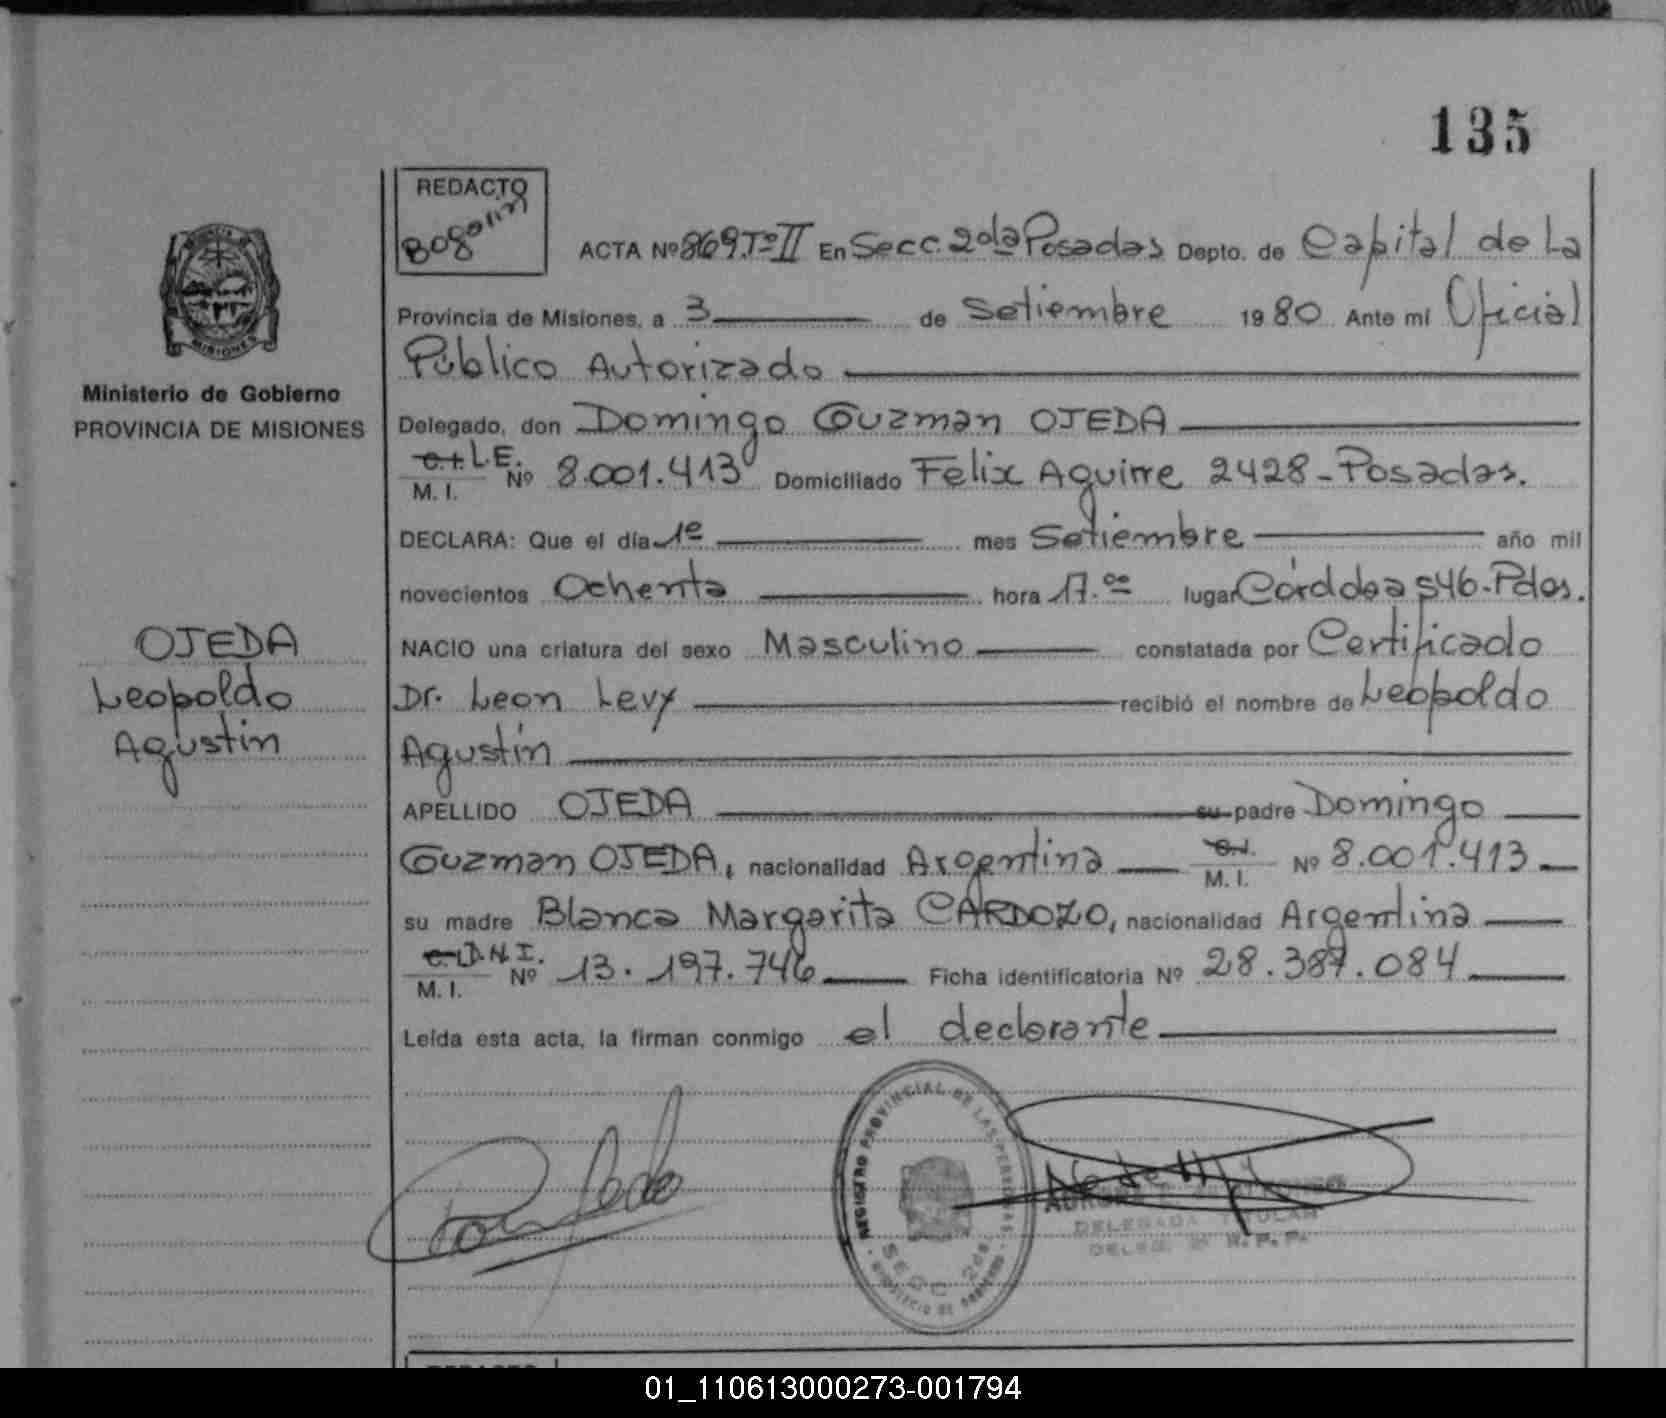 135
REDACTO
Bogarin
ACTA Nº 869.Tº II En Secc. 2da Posadas Depto. de Capital de La
Provincia de Misiones, a 3 de Setiembre 1980 Ante mi Oficial
Público Autorizado
Delegado, don Domingo Guzman OJEDA
C.I. L.E.
M. I. Nº 8.001.413 Domiciliado Felix Aguirre 2428-Posadas.
DECLARA: Que el día 1º mes Setiembre año mil
novecientos Ochenta hora 17.00 lugar Córdoba 546-Pdas.
NACIO una criatura del sexo Masculino constatada por Certificado
Dr. Leon Levy recibió el nombre de Leopoldo
Agustín
APELLIDO OJEDA su padre Domingo
Guzman OJEDA, nacionalidad Argentina C.I.
M. I. Nº 8.001.413
su madre Blanca Margarita CARDOZO, nacionalidad Argentina
C.I. D.N.I.
M. I. Nº 13.197.746 Ficha identificatoria Nº 28.387.084
Leída esta acta, la firman conmigo el declarante
PROVINCIA DE
MISIONES
Ministerio de Gobierno
PROVINCIA DE MISIONES
OJEDA
Leopoldo
Agustín
REGISTRO PROVINCIAL DE LAS PERSONAS
SECC. 2da.
MINISTERIO DE GOBIERNO
DELEGADA TITULAR
R. P. P.
REDACTO
01_110613000273-001794